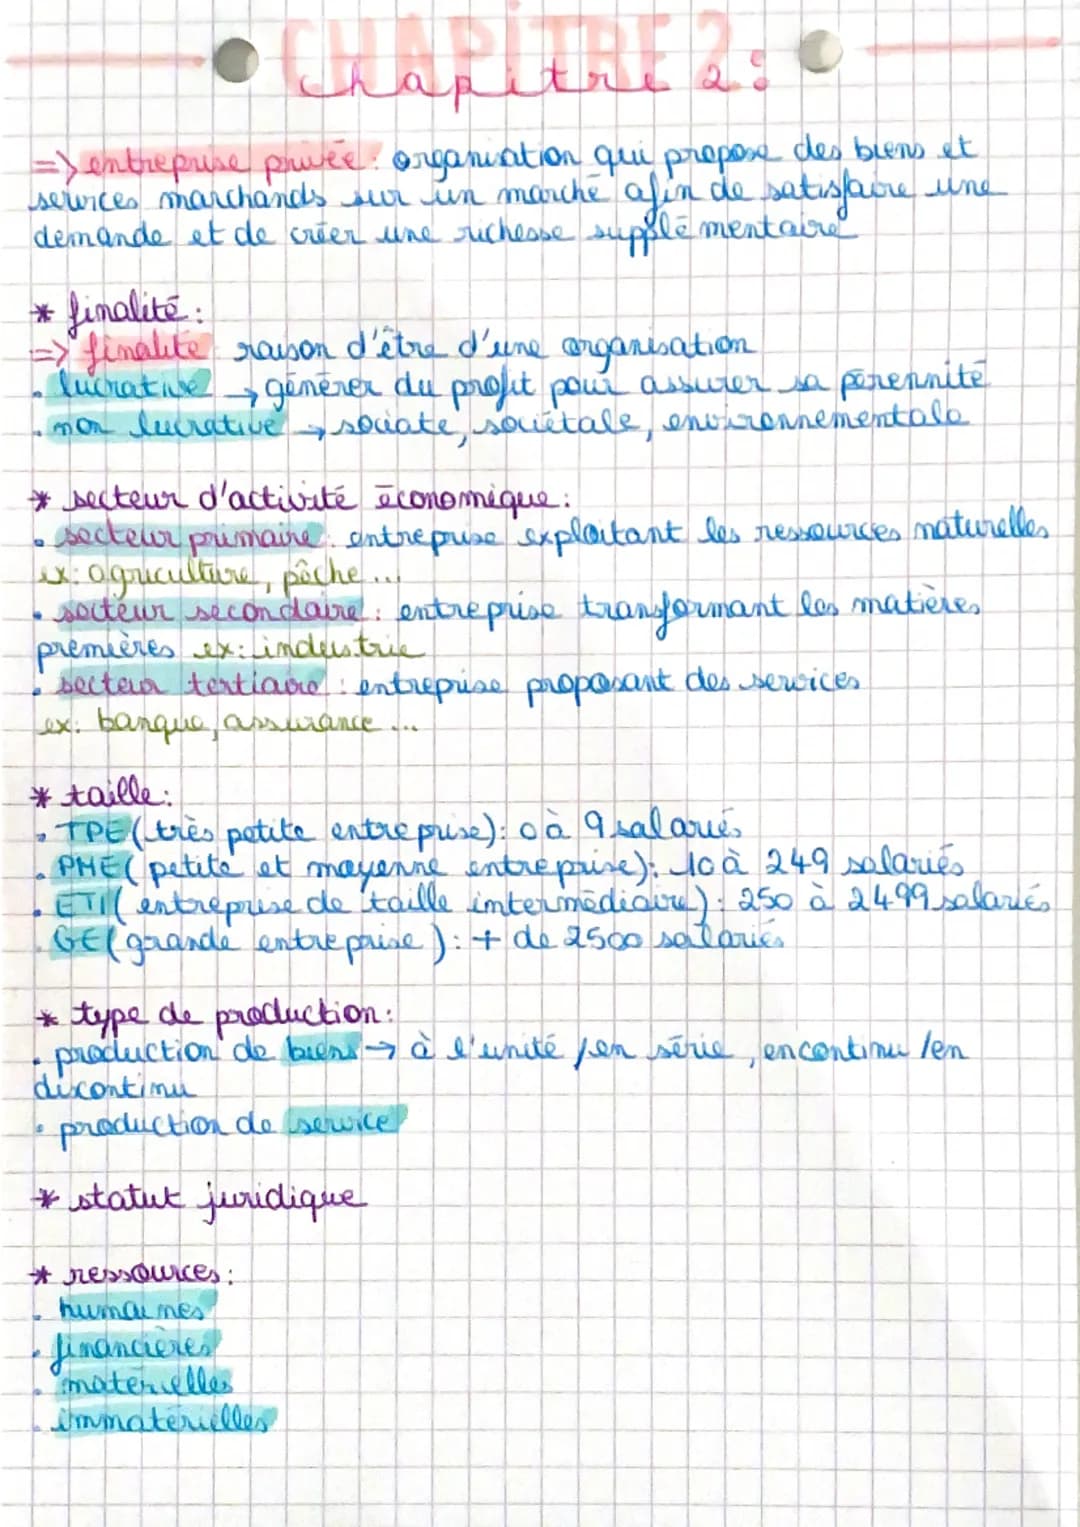 CHAPITRE 2:
Chapitre 2:
=> entreprise privée: organisation qui propose des biens et
services marchands sur un marché afin de satisfaire une
demande et de créer une richesse supplémentaire
* finalité:
=> finalité raison d'être d'une organisation
. lucrative → générer du profit pour assurer sa pérennité
. non lucrative → sociate, sociétale, environnementale
* secteur d'activité économique:
. secteur primaire: entreprise exploitant les ressources naturelles
ex: agriculture, pêche...
. secteur secondaire: entreprise transformant les matières
premières ex: industrie
. secteur tertiaire: entreprise proposant des services
ex: banque, assurance...
* taille:
. TPE (très petite entreprise): 0 à 9 salariés
. PME (petite et moyenne entreprise): 10 à 249 salariés
. ETI (entreprise de taille intermédiaire): 250 à 2499 salariés
. GE (grande entreprise): + de 2500 salariés
* type de production:
. production de biens → à l'unité / en série, en continu / en
discontinu
. production de service
* statut juridique
* ressources:
. humaines
. financières
. matérielles
. immatérielles